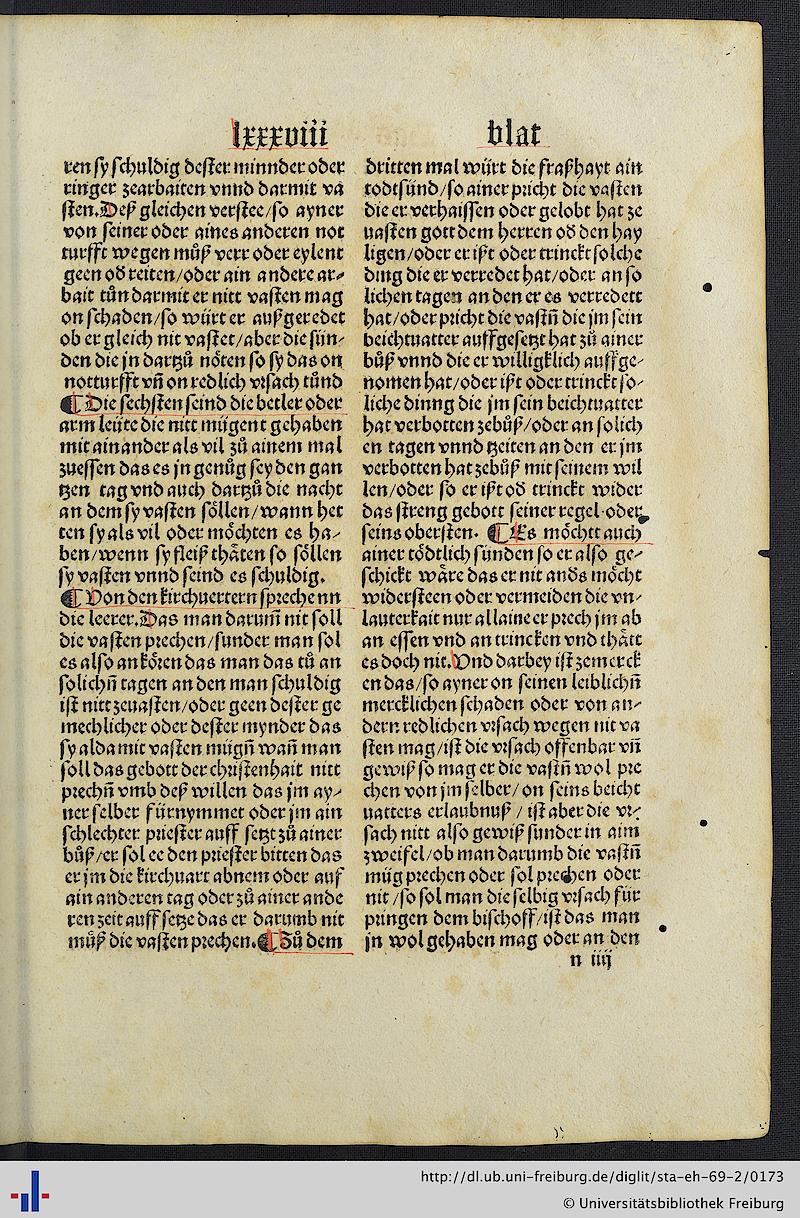 lxxxviii
blat
ren sy schuldig dester minnder oder
ringer zearbaiten vnnd darmit va
sten. Deß gleichen verstee/so ayner
von seiner oder aines anderen not
turfft wegen müß verr oder eylent
geen od reiten/oder ain andere ar⸗
bait tůn darmit er nitt vasten mag
on schaden/so würt er außgeredet
ob er gleich nit vastet/aber die sün⸗
den die jn dartzů nöten so sy das on
notturfft vn̄ on redlich vrsach tůnd
¶ Die sechsten seind die betler oder
arm leüte die nitt mügent gehaben
mit ainander als vil zů ainem mal
zuessen das es jn genůg sey den gan
tzen tag vnd auch dartzů die nacht
an dem sy vasten söllen/wann het
ten sy als vil oder möchten es ha⸗
ben/wenn sy fleiß thäten so söllen
sy vasten vnnd seind es schuldig.
¶ Von den kirchuertern sprechenn
die leerer. Das man darum̄ nit soll
die vasten prechen/sunder man sol
es also ankören das man das tů an
solichn̄ tagen an den man schuldig
ist nitt zeuasten/oder geen dester ge
mechlicher oder dester mynder das
sy alda mit vasten mügn̄ wan̄ man
soll das gebott der christenhait nitt
prechn̄ vmb deß willen das jm ay⸗
ner selber fürnymmet oder jm ain
schlechter priester auff setzt zů ainer
bůß/er sol ee den priester bitten das
er jm die kirchuart abnem oder auf
ain anderen tag oder zů ainer ande
ren zeit auff setze das er darumb nit
můß die vasten prechen. ¶ Zů dem
dritten mal würt die fraßhayt ain
todtsünd/so ainer pricht die vasten
die er verhaissen oder gelobt hat ze
uasten gott dem herren od den hay
ligen/oder er ißt oder trinckt solche
ding die er verredet hat/oder an so
lichen tagen an den er es verredett
hat/oder pricht die vastn̄ die jm sein
beichtuatter auffgesetzt hat zů ainer
bůß vnnd die er willigklich auffge⸗
nomen hat/oder ißt oder trinckt so⸗
liche dinng die jm sein beichtuatter
hat verbotten zebůß/oder an solich
en tagen vnnd tzeiten an den er jm
verbotten hat zebůß mit seinem wil
len/oder so er ißt od trinckt wider
das streng gebott seiner regel oder
seins obersten. ¶ Es möchtt auch
ainer tödtlich sünden so er also ge⸗
schickt wäre das er nit ands möcht
widersteen oder vermeiden die vn⸗
lauterkait nur allaine er prech jm ab
an essen vnd an trincken vnd thätt
es doch nit. Vnd darbey ist zemerck
en das/so ayner on seinen leiblichn̄
mercklichen schaden oder von an⸗
dern redlichen vrsach wegen nit va
sten mag/ist die vrsach offenbar vn̄
gewiß so mag er die vastn̄ wol pre
chen von jm selber/on seins beicht
uatters erlaubnuß/ist aber die vr⸗
sach nitt also gewiß sunder in aim
zweifel/ob man darumb die vastn̄
müg prechen oder sol prechen oder
nit/so sol man die selbig vrsach für
pringen dem bischoff/ist das man
jn wol gehaben mag oder an den
n iiij
http://dl.ub.uni-freiburg.de/diglit/sta-eh-69-2/0173
© Universitätsbibliothek Freiburg